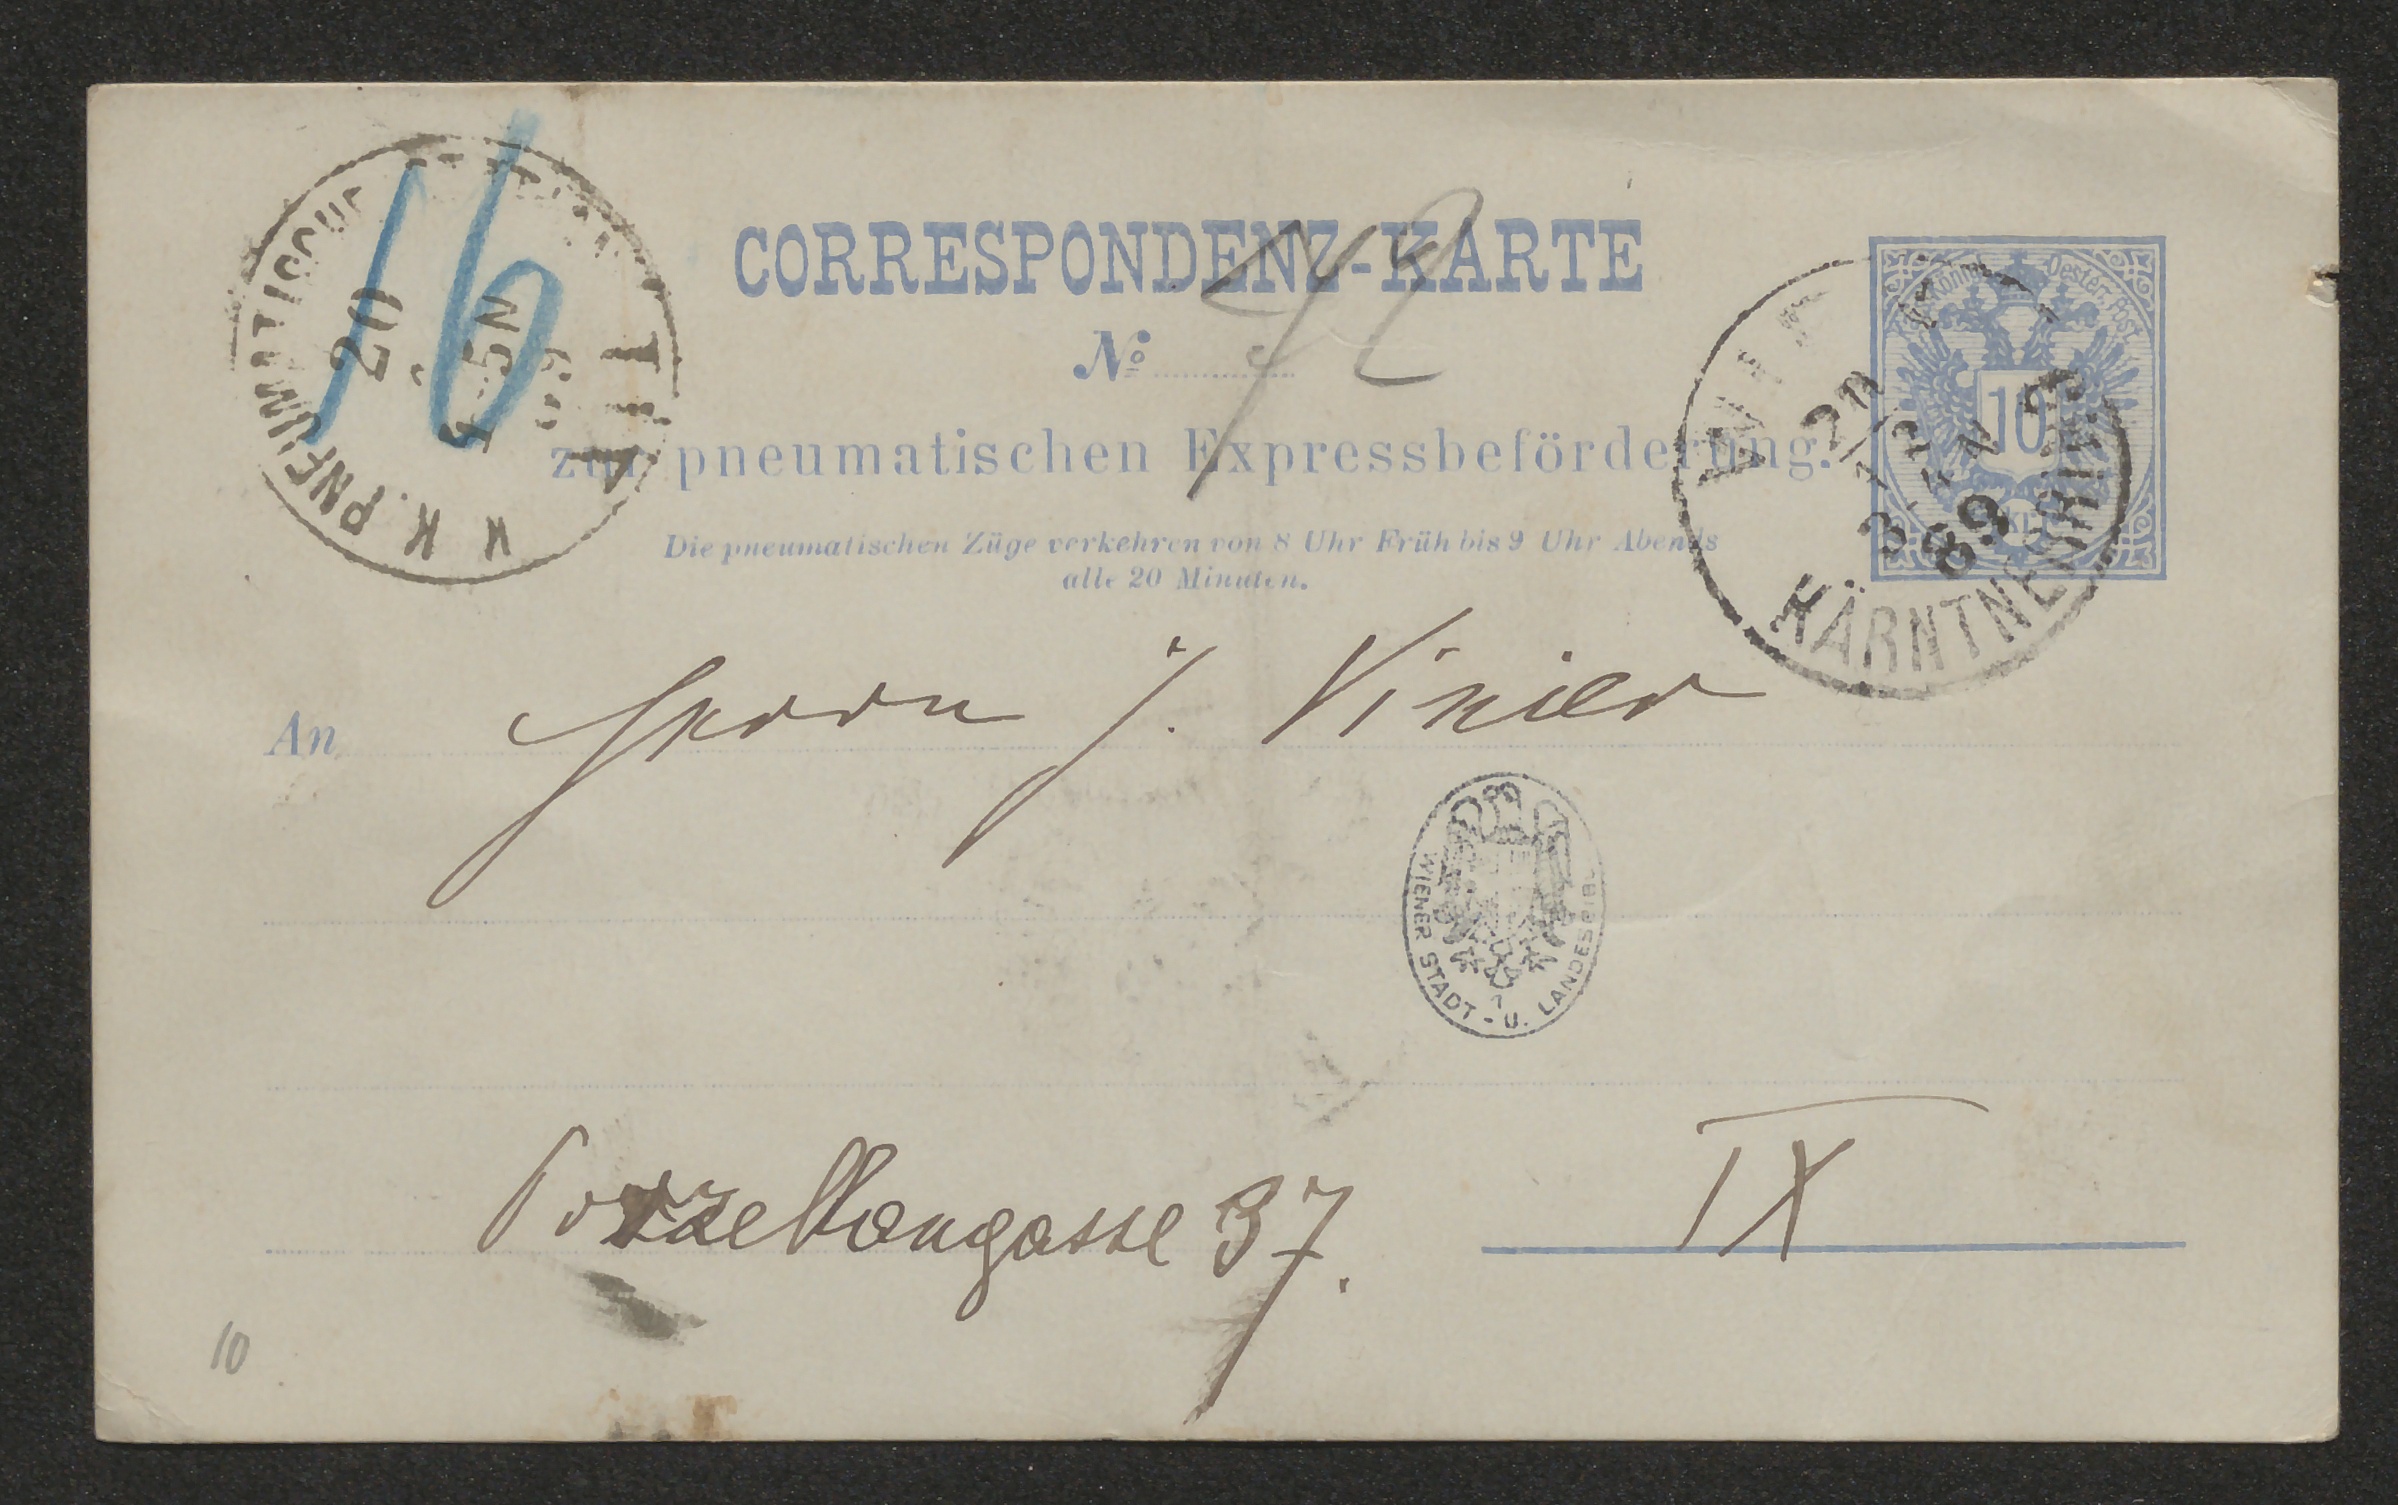 CORRESPONDENZ-KARTE
No 42
zur pneumatischen Expressbeförderung.
Die pneumatischen Züge verkehren von 8 Uhr Früh bis 9 Uhr Abends
alle 20 Minuten.
16
K K. PNEUMATISCHE
20
4-5N
89
WIEN
20
3-4N
89
KÄRNTNERRING
Oesterr. Post
10
KR
An Herrn J. Vinier
WIENER STADT - U. LANDESBIBL.
Porzellangasse 37.
IX
10